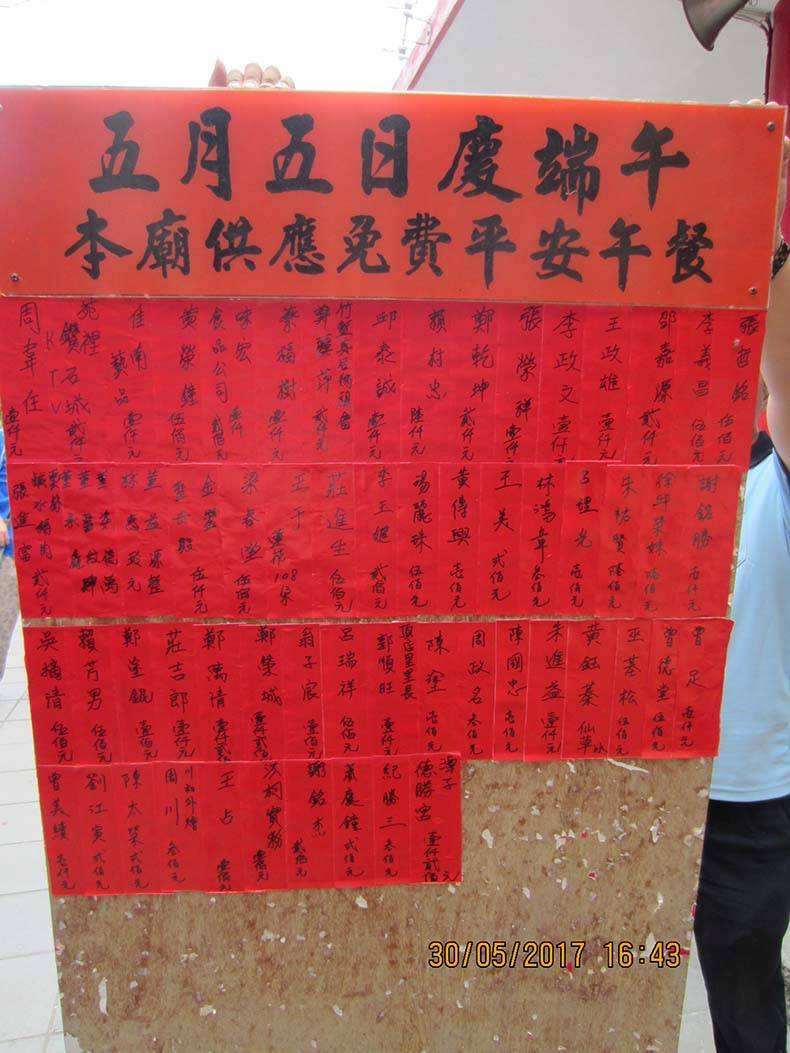 五月五日慶端午
本廟供應免費平安午餐
張哲銘 伍佰元
李義昌 伍佰元
邵嘉源 貳仟元
王政雄 壹仟元
李政文 壹仟元
張榮祥 壹仟元
鄭乾坤 貳仟元
賴村忠 陸仟元
邱泰誠 壹仟元
鄭 萍 貳仟元
蔡福樹 壹仟元
味宏食品公司 貳佰
黃榮鐘 伍佰元
佳南藝品 壹仟元
苑裡鑽石城KTV 貳仟元
周韋任 壹仟元
謝銘勝 壹仟元
徐邱菜妹 陸佰元
朱祐賢 陸佰元
呂理光 壹佰元
林鴻章 叁佰元
王美 貳佰元
黃傳興 壹佰元
湯麗珠 伍佰元
李玉 貳佰元
莊進生 伍佰元
王于 108
梁春 伍佰元
伍仟元
林 元
貳仟元
張進富
曾足 壹仟元
曾德堂 伍佰元
巫基松 伍佰元
黃鈺蓁 仙草
朱進益 壹仟元
陳國忠 壹佰元
周政名 叁佰元
陳 壹佰元
里里長 郭順旺 壹仟元
呂瑞祥 伍佰元
翁子宸 壹佰元
鄭榮城 壹仟貳佰
鄭萬清
莊吉郎 壹仟元
鄭塗錕 壹佰元
賴芳男 伍佰元
吳楊清 伍佰元
潭子德勝宮 壹仟貳佰元
紀勝三 叁佰元
葉慶鐘 貳佰元
謝銘杰 貳佰元
王占 壹佰元
周川 叁佰元
陳太榮 貳佰元
劉江寅 貳佰元
曾美績 壹仟元
30/05/2017 16:43